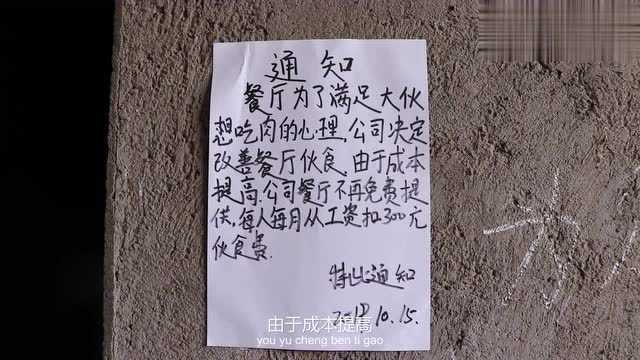 通知
餐厅为了满足大伙
想吃肉的心理,公司决定
改善餐厅伙食.由于成本
提高.公司餐厅不再免费提
供,每人每月从工资扣300元
伙食费.
特此通知
10.15.
由于成本提高
you yu cheng ben ti gao